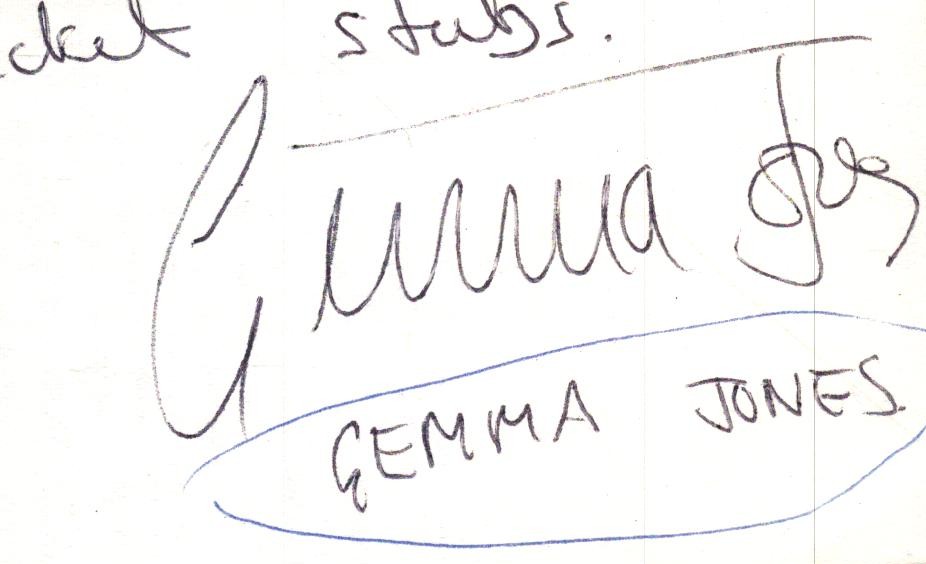 stubs.
Gemma Jones
GEMMA JONES